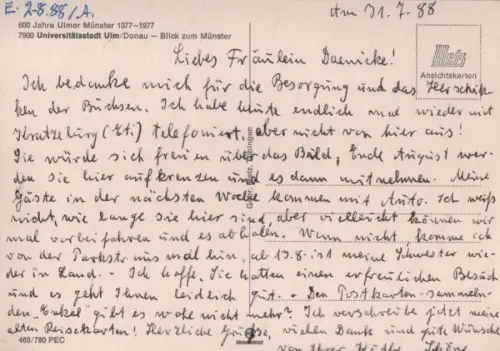 E. 2.8.88/A.
Am 31.7.88
600 Jahre Ulmer Münster 1377–1977
7900 Universitätsstadt Ulm/Donau – Blick zum Münster
Metz
Ansichtskarten
Liebes Fräulein Daenicke!
Ich bedanke mich für die Besorgung und das Herschik-
ken der Büchsen. Ich habe heute endlich mal wieder mit
(Eti) telefoniert, aber nicht von hier aus!
Sie würde sich freuen über das Bild, Ende August wer-
den sie hier aufkreuzen und es dann mitnehmen. Meine
Gäste in der nächsten Woche kommen mit Auto. Ich weiß
nicht, wie lange sie hier sind, aber vielleicht können wir
mal vorbeifahren und es abholen. Wenn nicht, komme ich
von der Parkstr. aus mal hin, ab 13.8. ist meine Schwester wie-
der in Land. - Ich hoffe, Sie hatten einen erfreulichen Besuch
und es geht Ihnen leidlich gut. - Den Postkarten-sammeln-
den "Enkel" gibt es wohl nicht mehr? Ich verschreibe jetzt meine
alten Reisekarten! Herzliche Grüße, vielen Dank und gute Wünsche
von Ihrer
460/780 PEC